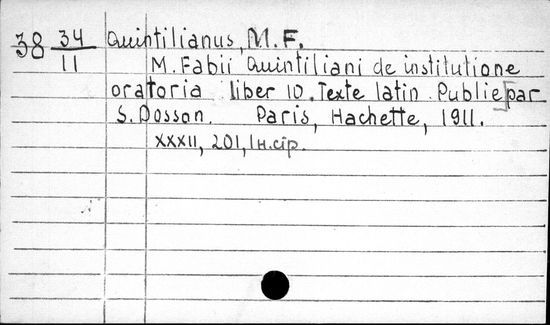 38 34/11 Quintilianus, M. F.
M. Fabii Quintiliani de institutione
oratoria liber 10. Texte latin. Publie par
S. Dosson. Paris, Hachette, 1911.
XXXII, 201, 1 н.стр.